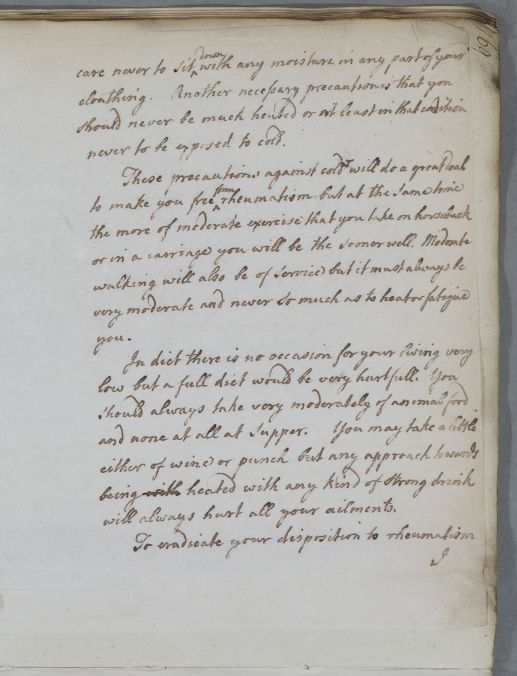 169
care never to sit down with any moisture in any part of your
cloathing. Another necessary precaution is that you
should never be much heated or at least in that condition
never to be exposed to cold.
These precautions against cold will do a great deal
to make you free from rheumatism but at the same time
the more of moderate exercise that you take on horseback
or in a carriage you will be the sooner well. Moderate
walking will also be of service but it must always be
very moderate and never so much as to heat or fatigue
you.
In diet there is no occasion for your living very
low but a full diet would be very hurtfull. You
should always take very moderately of animal food
and none at all at supper. You may take a little
either of wine or punch but any approach towards
being with heated with any kind of strong drink
will always hurt all your ailments.
To eradicate your disposition to rheumatism
I